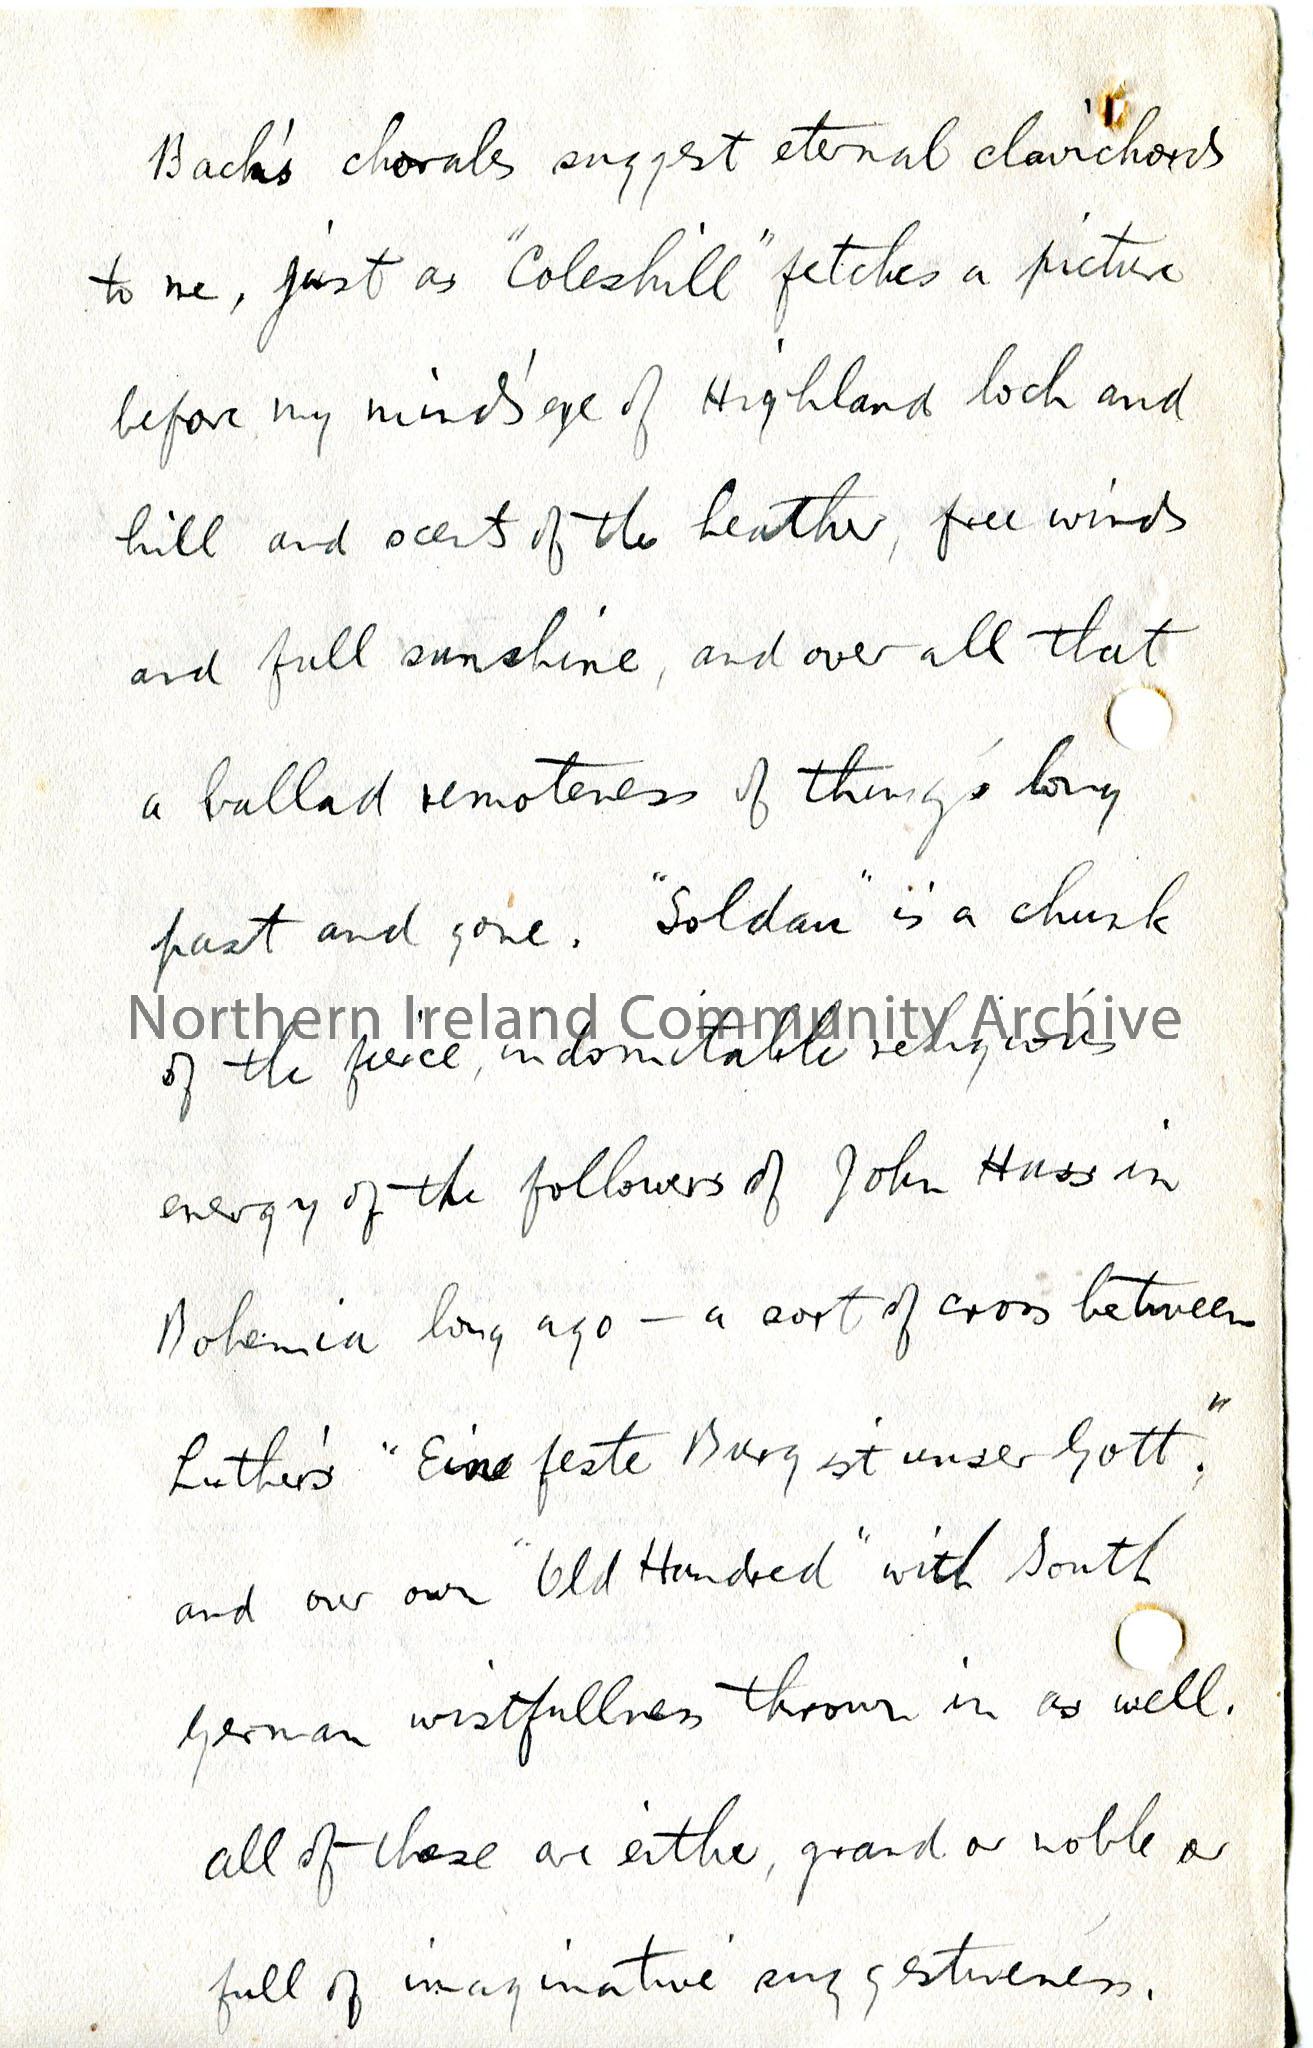 Bach's chorales suggest eternal clavichords
to me, just as "Coleshill" fetches a picture
before my mind's eye of Highland loch and
hill and scent of the heather, free winds
and full sunshine, and over all that
a ballad remoteness of things long
past and gone. "Soldau" is a chunk
Northern Ireland Community Archive
of the fierce, indomitable religious
energy of the followers of John Huss in
Bohemia long ago – a sort of cross between
Luther's "Eine feste Burg ist unser Gott",
and our own "Old Hundred" with South
German wistfullness thrown in as well.
All of these are either, grand or noble or
full of imaginative suggestiveness.